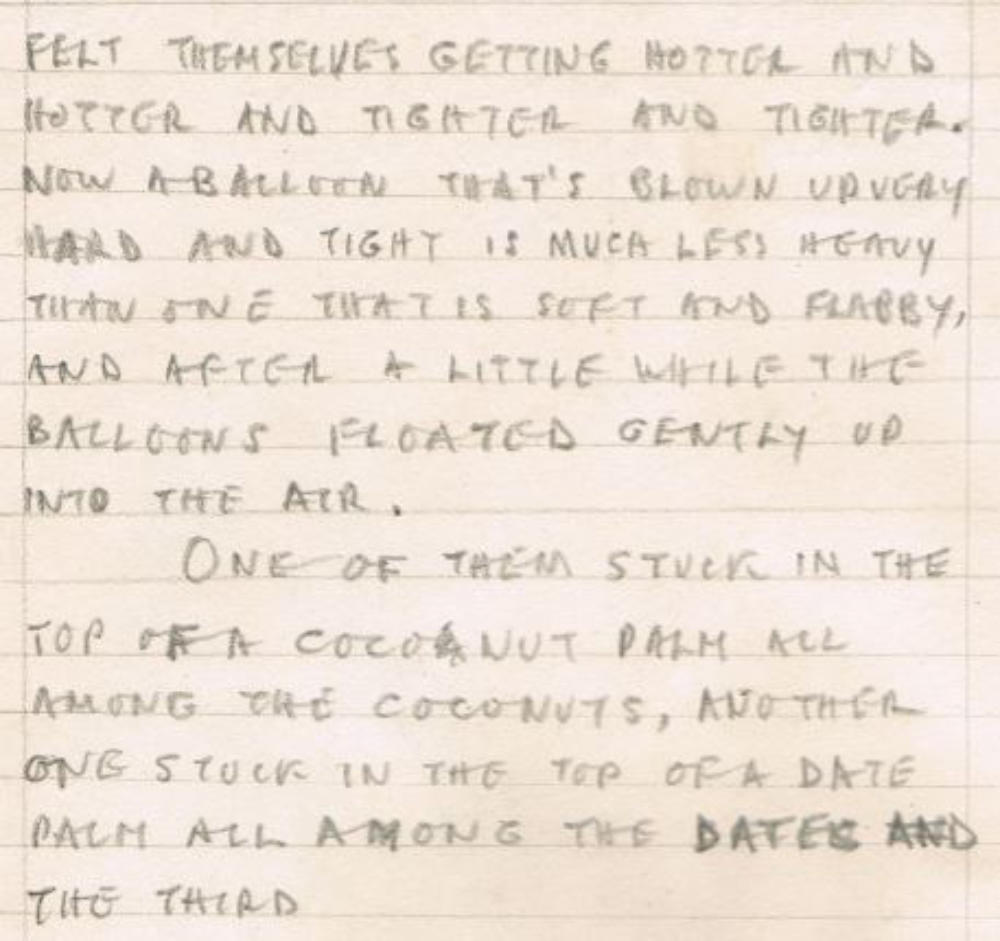 FELT THEMSELVES GETTING HOTTER AND
HOTTER AND TIGHTER AND TIGHTER.
NOW A BALLOON THAT'S BLOWN UP VERY
HARD AND TIGHT IS MUCH LESS HEAVY
THAN ONE THAT IS SOFT AND FLABBY,
AND AFTER A LITTLE WHILE THE
BALLOONS FLOATED GENTLY UP
INTO THE AIR.
ONE OF THEM STUCK IN THE
TOP OF A COCOANUT PALM ALL
AMONG THE COCONUTS, ANOTHER
ONE STUCK IN THE TOP OF A DATE
PALM ALL AMONG THE DATES AND
THE THIRD